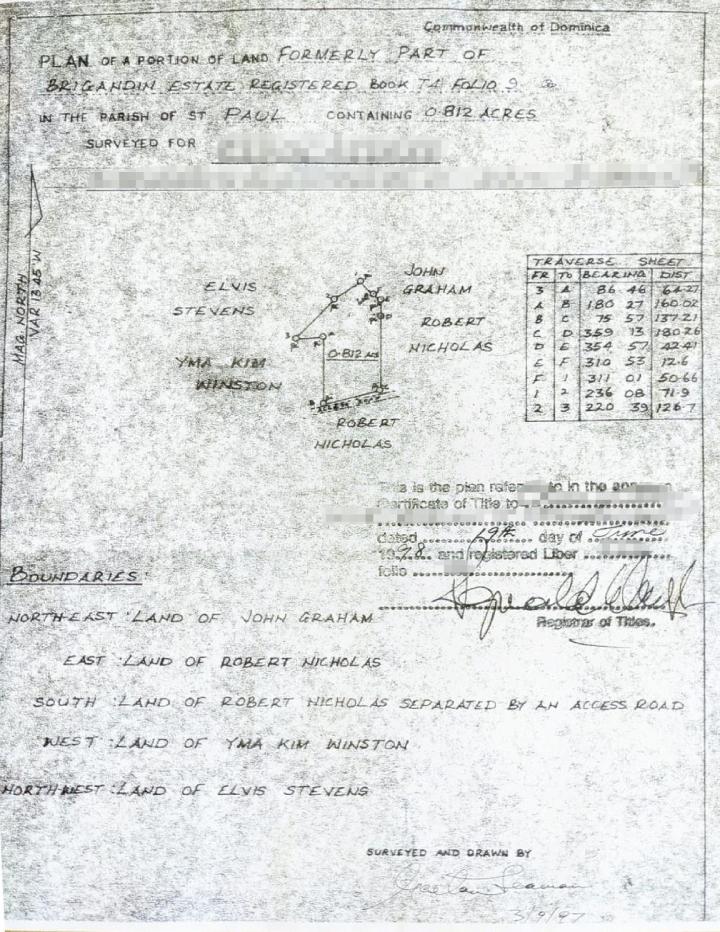 Commonwealth of Dominica
PLAN OF A PORTION OF LAND FORMERLY PART OF
BRIGANDIN ESTATE REGISTERED BOOK T4 FOLIO 9
IN THE PARISH OF ST PAUL CONTAINING 0.812 ACRES
SURVEYED FOR
MAG NORTH
VAR 13 45' W
ELVIS
STEVENS
JOHN
GRAHAM
ROBERT
NICHOLAS
YMA KIM
WINSTON
0.812 AS
ROBERT
NICHOLAS
TRAVERSE SHEET
FR TO BEARING DIST
3 A 86 46 64.27
A B 180 27 160.02
B C 75 57 137.21
C D 359 13 180.26
D E 354 57 42.41
E F 310 53 12.6
F 1 311 01 50.66
1 2 236 08 71.9
2 3 220 39 126.7
This is the plan refer to in the
Certificate of Title to
dated 29th day of June
1998 and registered Liber
folio
Registrar of Titles.
BOUNDARIES:
NORTH-EAST: LAND OF JOHN GRAHAM
EAST: LAND OF ROBERT NICHOLAS
SOUTH: LAND OF ROBERT NICHOLAS SEPARATED BY AN ACCESS ROAD
WEST: LAND OF YMA KIM WINSTON
NORTH-WEST: LAND OF ELVIS STEVENS
SURVEYED AND DRAWN BY
3/9/97